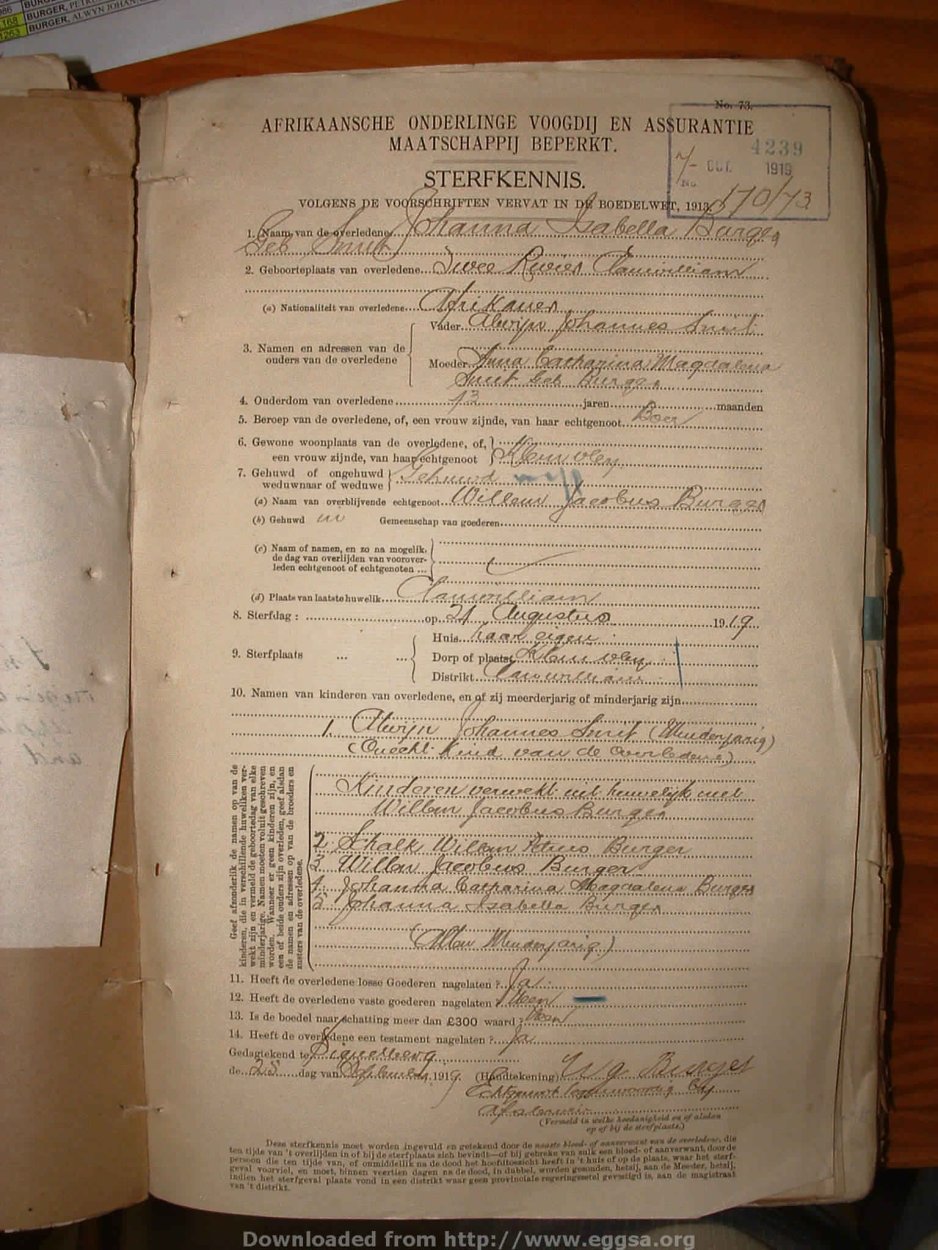 BURGER, ALWYN JOHAN
168
1253
No. 73.
AFRIKAANSCHE ONDERLINGE VOOGDIJ EN ASSURANTIE
MAATSCHAPPIJ BEPERKT.
4239
7- OCT. 1919
No.
170/73
STERFKENNIS.
VOLGENS DE VOORSCHRIFTEN VERVAT IN DE BOEDELWET, 1913.
1. Naam van de overledene Johanna Isabella Burger
Geb Smit
2. Geboorteplaats van overledene Twee Rivier Clanwilliam
(a) Nationaliteit van overledene Afrikaner
3. Namen en adressen van de ouders van de overledene
Vader Alwijn Johannes Smit
Moeder Anna Catharina Magdalena
Smit Geb Burger
4. Ouderdom van overledene jaren maanden
5. Beroep van de overledene, of, een vrouw zijnde, van haar echtgenoot Boer
6. Gewone woonplaats van de overledene, of, een vrouw zijnde, van haar echtgenoot Klein vley
7. Gehuwd of ongehuwd weduwnaar of weduwe Gehuwd
(a) Naam van overblijvende echtgenoot Willem Jacobus Burger
(b) Gehuwd in Gemeenschap van goederen
(c) Naam of namen, en zo na mogelik, de dag van overlijden van vooroverleden echtgenoot of echtgenoten ...
(d) Plaats van laatste huwelik Clanwilliam
8. Sterfdag : op 21 Augustus 1919
9. Sterfplaats ... ...
Huis haar eigen
Dorp of plaats Klein vley
Distrikt Clanwilliam
10. Namen van kinderen van overledene, en of zij meerderjarig of minderjarig zijn
1. Alwijn Johannes Smit (Minderjarig)
(Onecht Kind van de Overledene)
Geef afzonderlik de namen op van de kinderen, die in verschillende huweliken verwekt zijn en vermeld de geboortedag van elke minderjarige. Namen moeten voluit geschreven worden. Wanneer er geen kinderen zijn, en een of beide ouders zijn overleden, geef alsdan de namen en adressen op van de broeders en zusters van de overledene.
Kinderen verwekt uit huwelijk met
Willem Jacobus Burger
2. Schalk Willem Petrus Burger
3. Willem Jacobus Burger
4. Johanna Catharina Magdalena Burger
5. Johanna Isabella Burger
(Allen Minderjarig)
11. Heeft de overledene losse Goederen nagelaten ? Ja
12. Heeft de overledene vaste goederen nagelaten ? Neen
13. Is de boedel naar schatting meer dan £300 waard ? Neen
14. Heeft de overledene een testament nagelaten ? Ja
Gedagtekend te Piquetberg
de 25 dag van September 1919 (Handtekening) Burger
Echtgenoot
(Vermeld in welke hoedanigheid en of alsdan op of bij de sterfplaats.)
Deze sterfkennis moet worden ingevuld en getekend door de naaste bloed- of aanverwant van de overledene, die
ten tijde van 't overlijden in of bij de sterfplaats zich bevindt—of bij gebreke van zulk een bloed- of aanverwant, door de
persoon die ten tijde van, of onmiddellik na de dood het hoofdtoezicht heeft in 't huis of op de plaats, waar het sterf-
geval voorviel, en moet, binnen veertien dagen na de dood, in dubbel, worden gezonden, hetzij, aan de Meester, hetzij,
indien het sterfgeval plaats vond in een distrikt waar geen provinciale regeringszetel gevestigd is, aan de magistraat
van 't distrikt.
Downloaded from http://www.eggsa.org